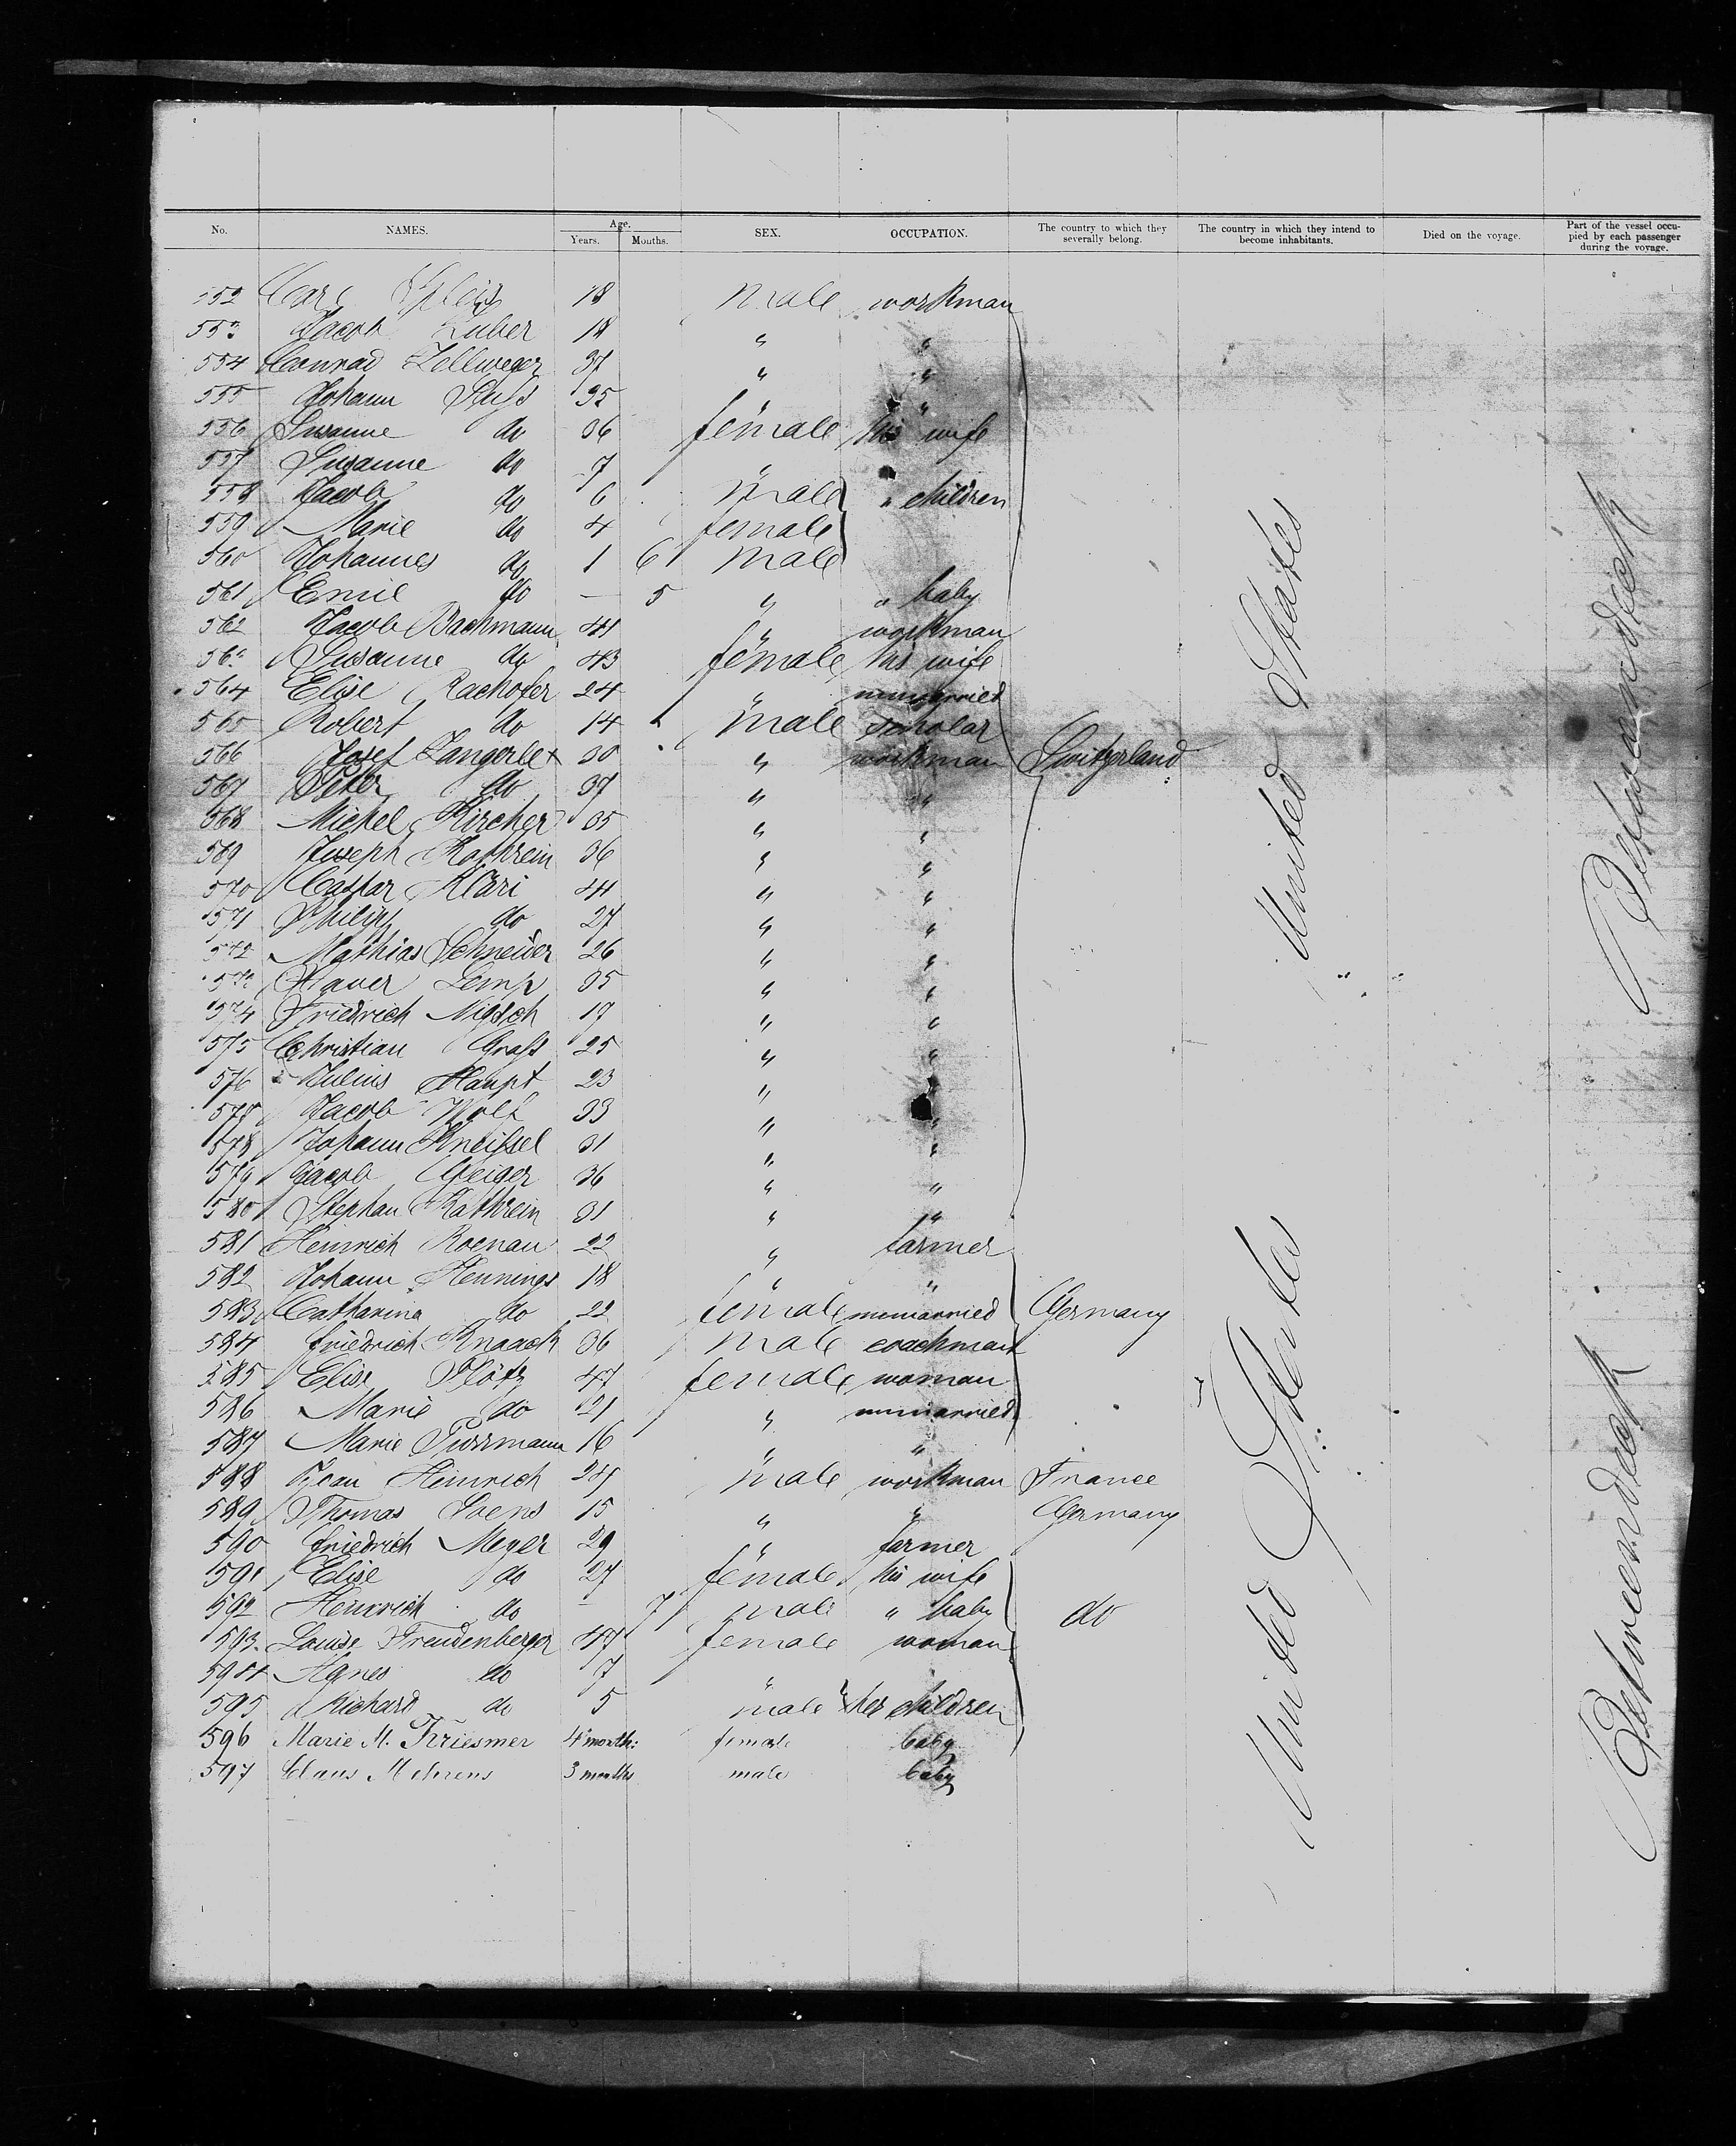 No. NAMES. Age. Years. Months. SEX. OCCUPATION. The country to which they severally belong. The country in which they intend to become inhabitants. Died on the voyage. Part of the vessel occupied by each passenger during the voyage.
552 Carl 18 male workman
553 Jacob Huber 18 " "
554 Conrad Zellweger 37 " "
555 Johann 35 " "
556 Susanne do 36 female his wife
557 Susanne do 7 "
558 Jacob do 6 male " children
559 Marie do 4 female
560 Johannes do 1 6 male
561 Emil do — 5 " " baby
562 Jacob Bachmann 41 " workman
563 Susanne do 43 female his wife
564 Elise Rachofer 24 " unmarried
565 Robert do 14 male scholar
566 Josef Zangerlet 30 " workman Switzerland
567 Peter do 37 " "
568 Michel Kircher 35 " "
569 Joseph Kathrein 36 " "
570 Caspar Kläri 44 " "
571 Philipp do 27 " "
572 Mathias Schneider 26 " "
573 Xaver Lemp 35 " "
574 Friedrich 17 " "
575 Christian Graß 25 " "
576 Julius Haupt 23 " "
577 Jacob Wolf 33 " "
578 Johann Kneissel 31 " "
579 Jacob Geiger 36 " "
580 Stephan Kathrein 31 " "
581 Heinrich Roenau 22 " farmer
582 Johann Hennings 18 " "
583 Catharina do 22 female unmarried Germany
584 Friedrich Knaack 36 male coachman
585 Elise Plötz 47 female woman
586 Marie do 21 " unmarried
587 Marie Purrmann 16 " "
588 Jean Heinrich 24 male workman France
589 Thomas Soens 15 " " Germany
590 Friedrich Meyer 29 " farmer
591 Elise do 27 female his wife
592 Heinrich do — 7 male " baby do
593 Louise Freudenberger 47 female woman
594 Agnes do 7 "
595 Richard do 5 male her children
596 Marie M. Kriesmer 4 month: female baby
597 Claus Mehrens 3 months male baby
United States
United States
Betweendeck
Betweendeck